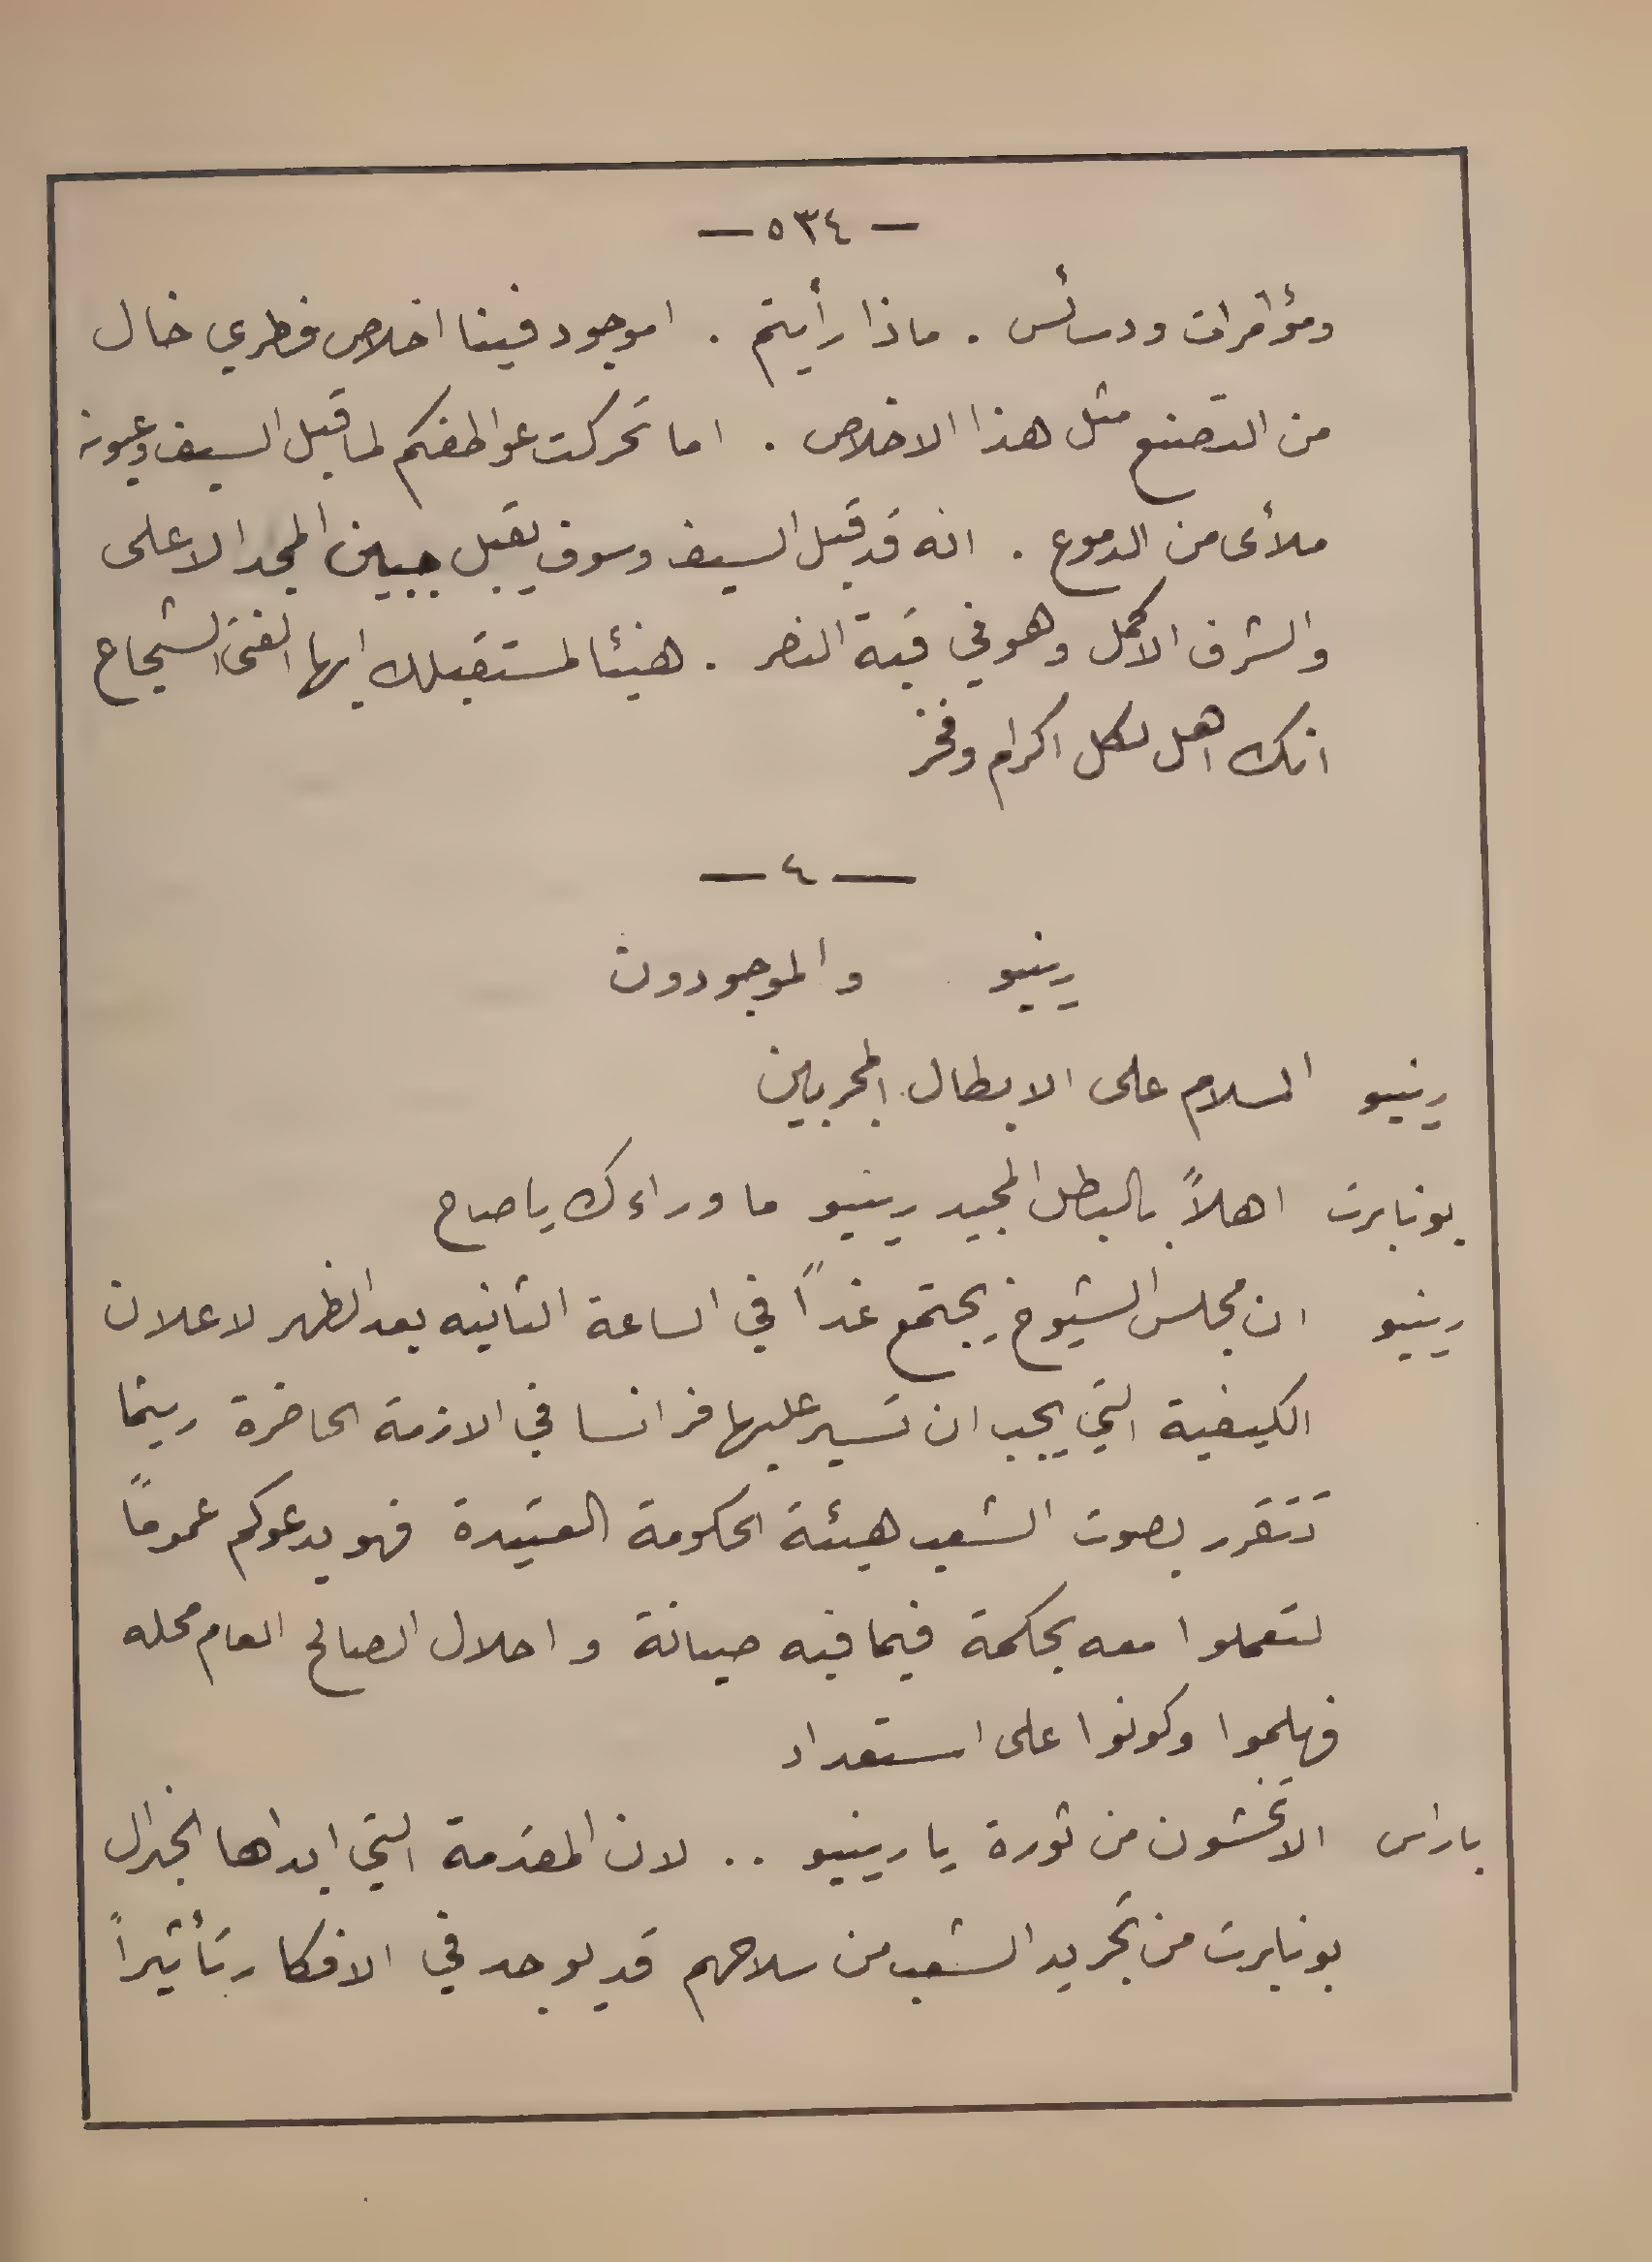 — ٥٣٤ —
ومؤامرات ودسائس . ماذا رأيتم . اموجود فينا اخلاص فطري خال
من التصنع مثل هذا الاخلاص . اما تحركت عواطفكم لما قبل السيف وعيونه
ملأى من الدموع . انه قد قبل السيف وسوف يقبل جبين المجد الاعلى
والشرف الاكمل وهو في قبة النصر . هنيئا لمستقبلك ايها الفتى الشجاع
انك اهل لكل اكرام وفخر
— ٤ —
رينيو والموجودون
رينيو السلام على الابطال المجربين
بونابرت اهلاً بالبطل المجيد رينيو ما وراءك يا صاح
رينيو ان مجلس الشيوخ يجتمع غداً في الساعة الثانيه بعد الظهر لاعلان
الكيفية التي يجب ان تسير عليها فرانسا في الازمة الحاضرة ريثما
تتقرر بصوت الشعب هيئة الحكومة العتيدة فهو يدعوكم عموماً
لتعملوا معه بحكمة فيما فيه صيانة واحلال الصالح العام محله
فهلموا وكونوا على استعداد
باراس الا تخشون من ثورة يا رينيو .. لان المقدمة التي ابداها الجنرال
بونابرت من تجريد الشعب من سلاحهم قد يوجد في الافكار تأثيراً